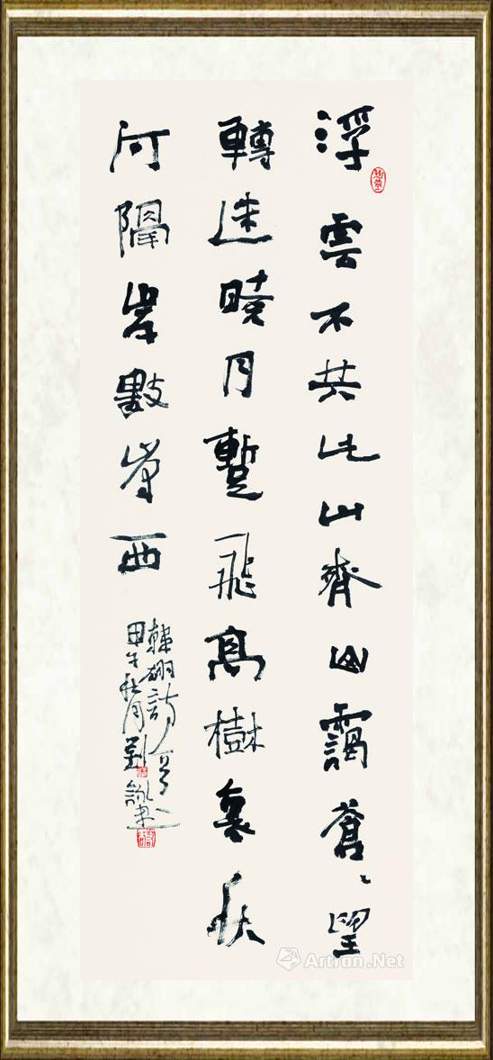 浮雲不共此山齊山靄蒼々望
轉迷曉月暫飛高樹裏秋
河隔岸數峯西
韓翃詩
甲午秋月劉
Artron.Net